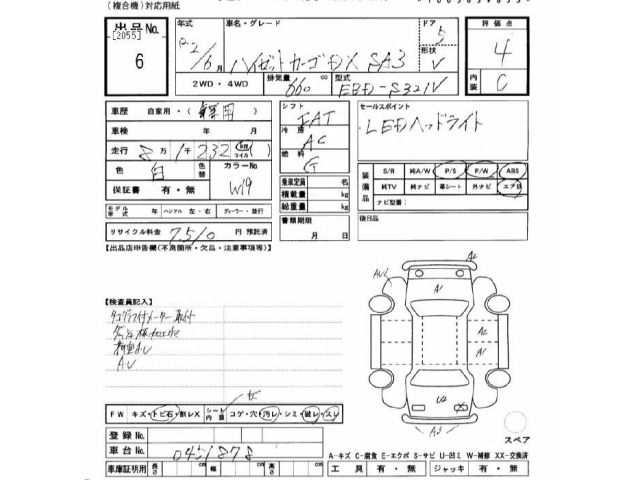 (複合機)対応用紙
出品No. [2055] 6
年式 R2/6月 車名・グレード ハイゼットカーゴDX SAⅢ ドア 5 形状 V
2WD・4WD 排気量 660 cc 型式 EBD-S321V
評価点 4
内装 C
車歴 自家用・(事業用)
車検 年 月
走行 8万1千232 km マイル
色 白 色替 カラーNo. W19
保証書 有・無
モデル年式 年 ハンドル 左・右 ディーラー・並行
リサイクル料金 7510 円 預託済
シフト FAT
冷房 AC
燃料 G
乗車定員 名
積載量 kg
総重量 kg
書類期限 月 日
セールスポイント
LEDヘッドライト
装備品 S/R 純A/W P/S P/W ABS
純TV 純ナビ 革シート 外ナビ エアB
ナビ型番:
後日品
【出品店申告欄(不良箇所・欠品・注意事項等)】
【検査員記入】
タコグラフ付メーター取付
AU
FW キズ・トビ石・削レX シート内装 コゲ・穴・汚レ・シミ・破レ・スレ
登録No.
車台No. 0451878
車庫証明用 長さ cm 幅 cm 高さ cm
A2
AU
A1
A2
A1
U2
A3
スペア
A-キズ C-腐食 E-エクボ S-サビ U-凹ミ W-補修 XX-交換済
工具 有・無 ジャッキ 有・無